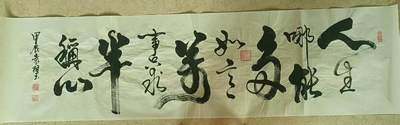 人生
哪能
多
如意
萬
事只求
半
稱心
甲辰